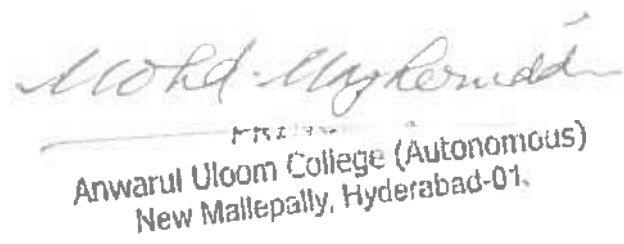 Mohd.
Anwarul Uloom College (Autonomous)
New Mallepally, Hyderabad-01.